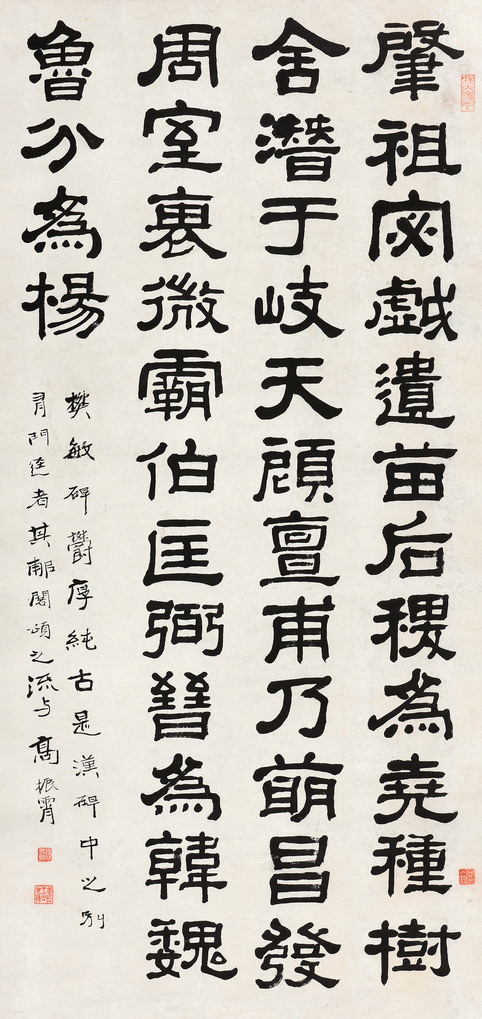 肇祖宓戲遺苗后稷為堯種樹
舍潛于岐天顧亶甫乃萌昌發
周室衰微霸伯匡弼晉為韓魏
魯分為楊
樊敏碑鬱厚純古是漢碑中之別
有門逕者其郙閣頌之流与 高振霄